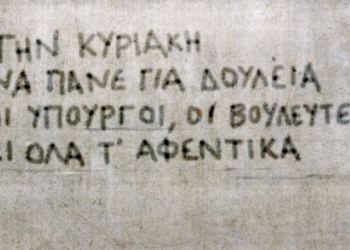 ΤΗΝ ΚΥΡΙΑΚΗ
ΝΑ ΠΑΝΕ ΓΙΑ ΔΟΥΛΕΙΑ
ΟΙ ΥΠΟΥΡΓΟΙ, ΟΙ ΒΟΥΛΕΥΤΕ
ΚΙ ΟΛΑ Τ' ΑΦΕΝΤΙΚΑ